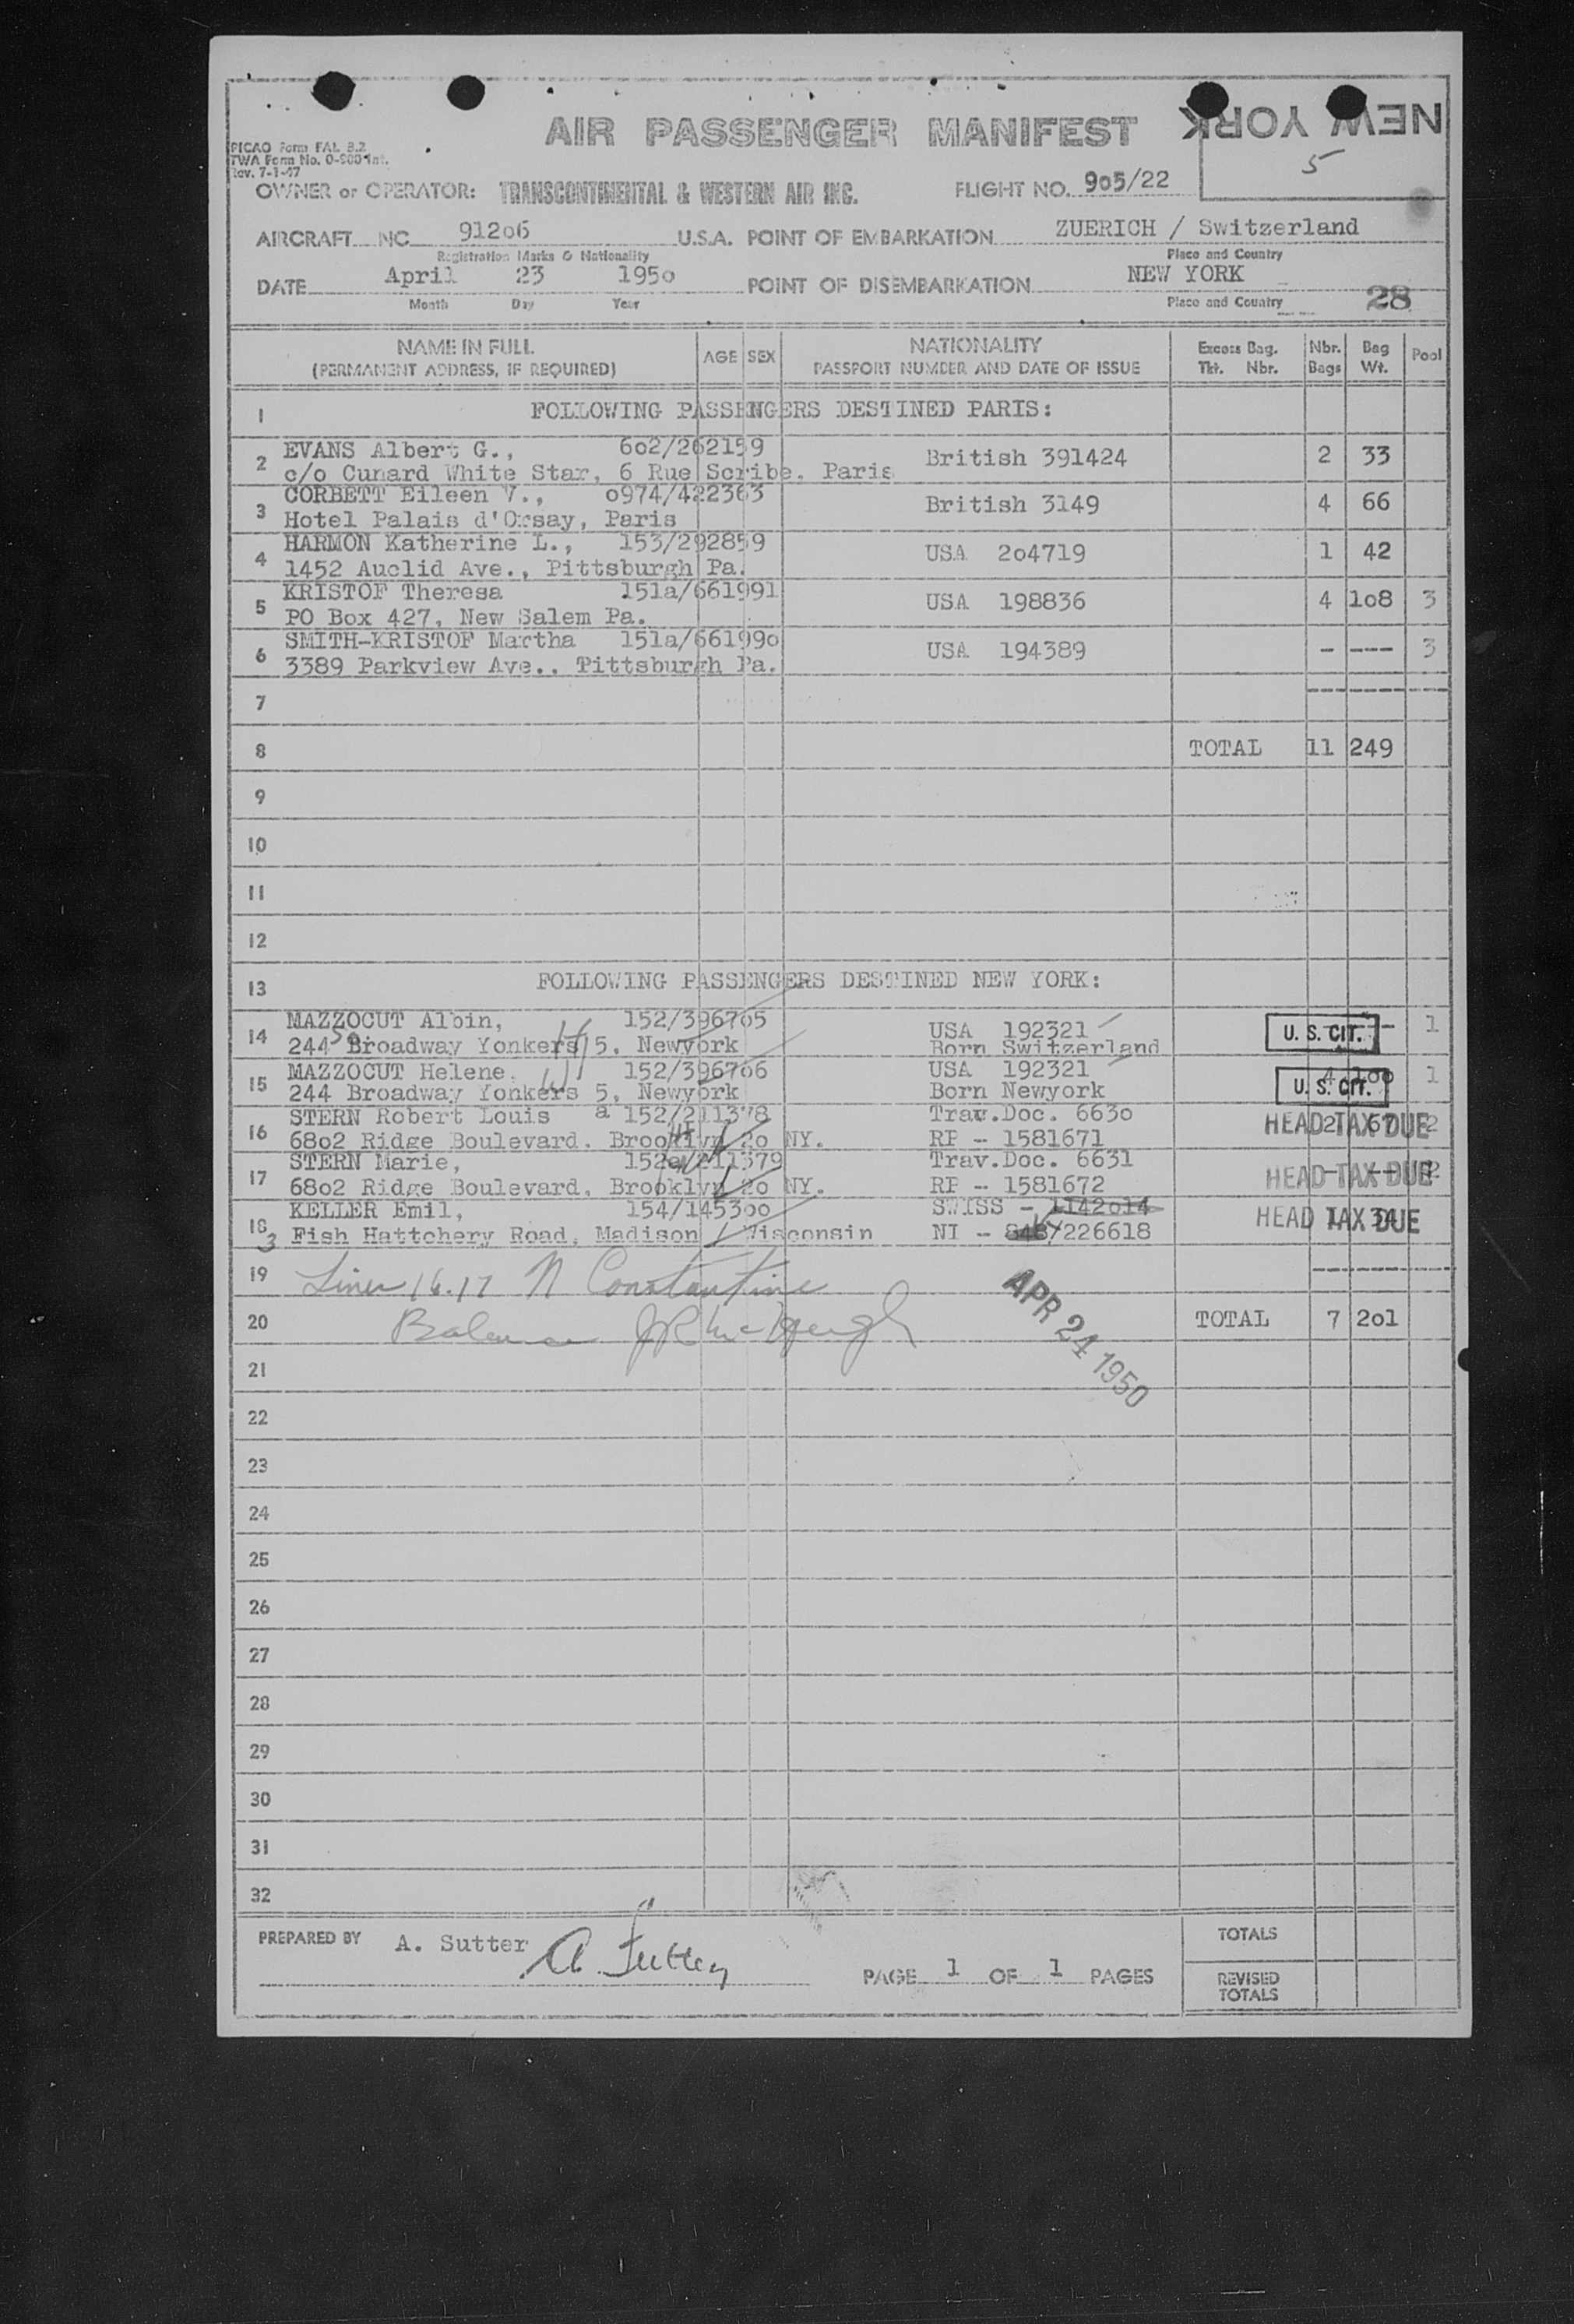 NEW YORK
AIR PASSENGER MANIFEST
5
PICAO Form FAL B.2
TWA Form No. 0-200 Int.
Rev. 7-1-47
OWNER or OPERATOR: TRANSCONTINENTAL & WESTERN AIR INC. FLIGHT NO. 9o5/22
AIRCRAFT NC 912o6 U.S.A. POINT OF EMBARKATION ZUERICH / Switzerland
Registration Marks & Nationality Place and Country
DATE April 23 195o POINT OF DISEMBARKATION NEW YORK
Month Day Year Place and Country 28
NAME IN FULL AGE SEX NATIONALITY Excess Bag. Nbr. Bag Pool
(PERMANENT ADDRESS, IF REQUIRED) PASSPORT NUMBER AND DATE OF ISSUE Tkt. Nbr. Bags Wt.
1 FOLLOWING PASSENGERS DESTINED PARIS:
2 EVANS Albert G., 6o2/262159 British 391424 2 33
c/o Cunard White Star, 6 Rue Scribe, Paris
3 CORBETT Eileen V., o974/422363 British 3149 4 66
Hotel Palais d'Orsay, Paris
4 HARMON Katherine L., 153/292859 USA 2o4719 1 42
1452 Auclid Ave., Pittsburgh Pa.
5 KRISTOF Theresa 151a/661991 USA 198836 4 1o8 3
PO Box 427, New Salem Pa.
6 SMITH-KRISTOF Martha 151a/66199o USA 194389 - --- 3
3389 Parkview Ave., Pittsburgh Pa.
7
8 TOTAL 11 249
9
10
11
12
13 FOLLOWING PASSENGERS DESTINED NEW YORK:
14 MAZZOCUT Albin, 152/3967o5 USA 192321 U. S. CIT. 1
244 Broadway Yonkers 5, Newyork Born Switzerland
15 MAZZOCUT Helene, 152/3967o6 USA 192321 4 1oo 1
244 Broadway Yonkers 5, Newyork Born Newyork U. S. CIT.
16 STERN Robert Louis a 152/211378 Trav.Doc. 663o HEAD TAX DUE 2 67 2
68o2 Ridge Boulevard, Brooklyn 2o NY. RP - 1581671
17 STERN Marie, 152a/211379 Trav.Doc. 6631 HEAD TAX DUE 2
68o2 Ridge Boulevard, Brooklyn 2o NY. RP - 1581672
18 KELLER Emil, 154/1453oo SWISS - 1142o14 HEAD TAX DUE 1 34
3 Fish Hattchery Road, Madison / Wisconsin NI - /226618
19 Lines 16.17 N Constantine
20 Balance TOTAL 7 2o1
APR 24 1950
21
22
23
24
25
26
27
28
29
30
31
32
PREPARED BY A. Sutter A. Sutter TOTALS
PAGE 1 OF 1 PAGES REVISED
TOTALS